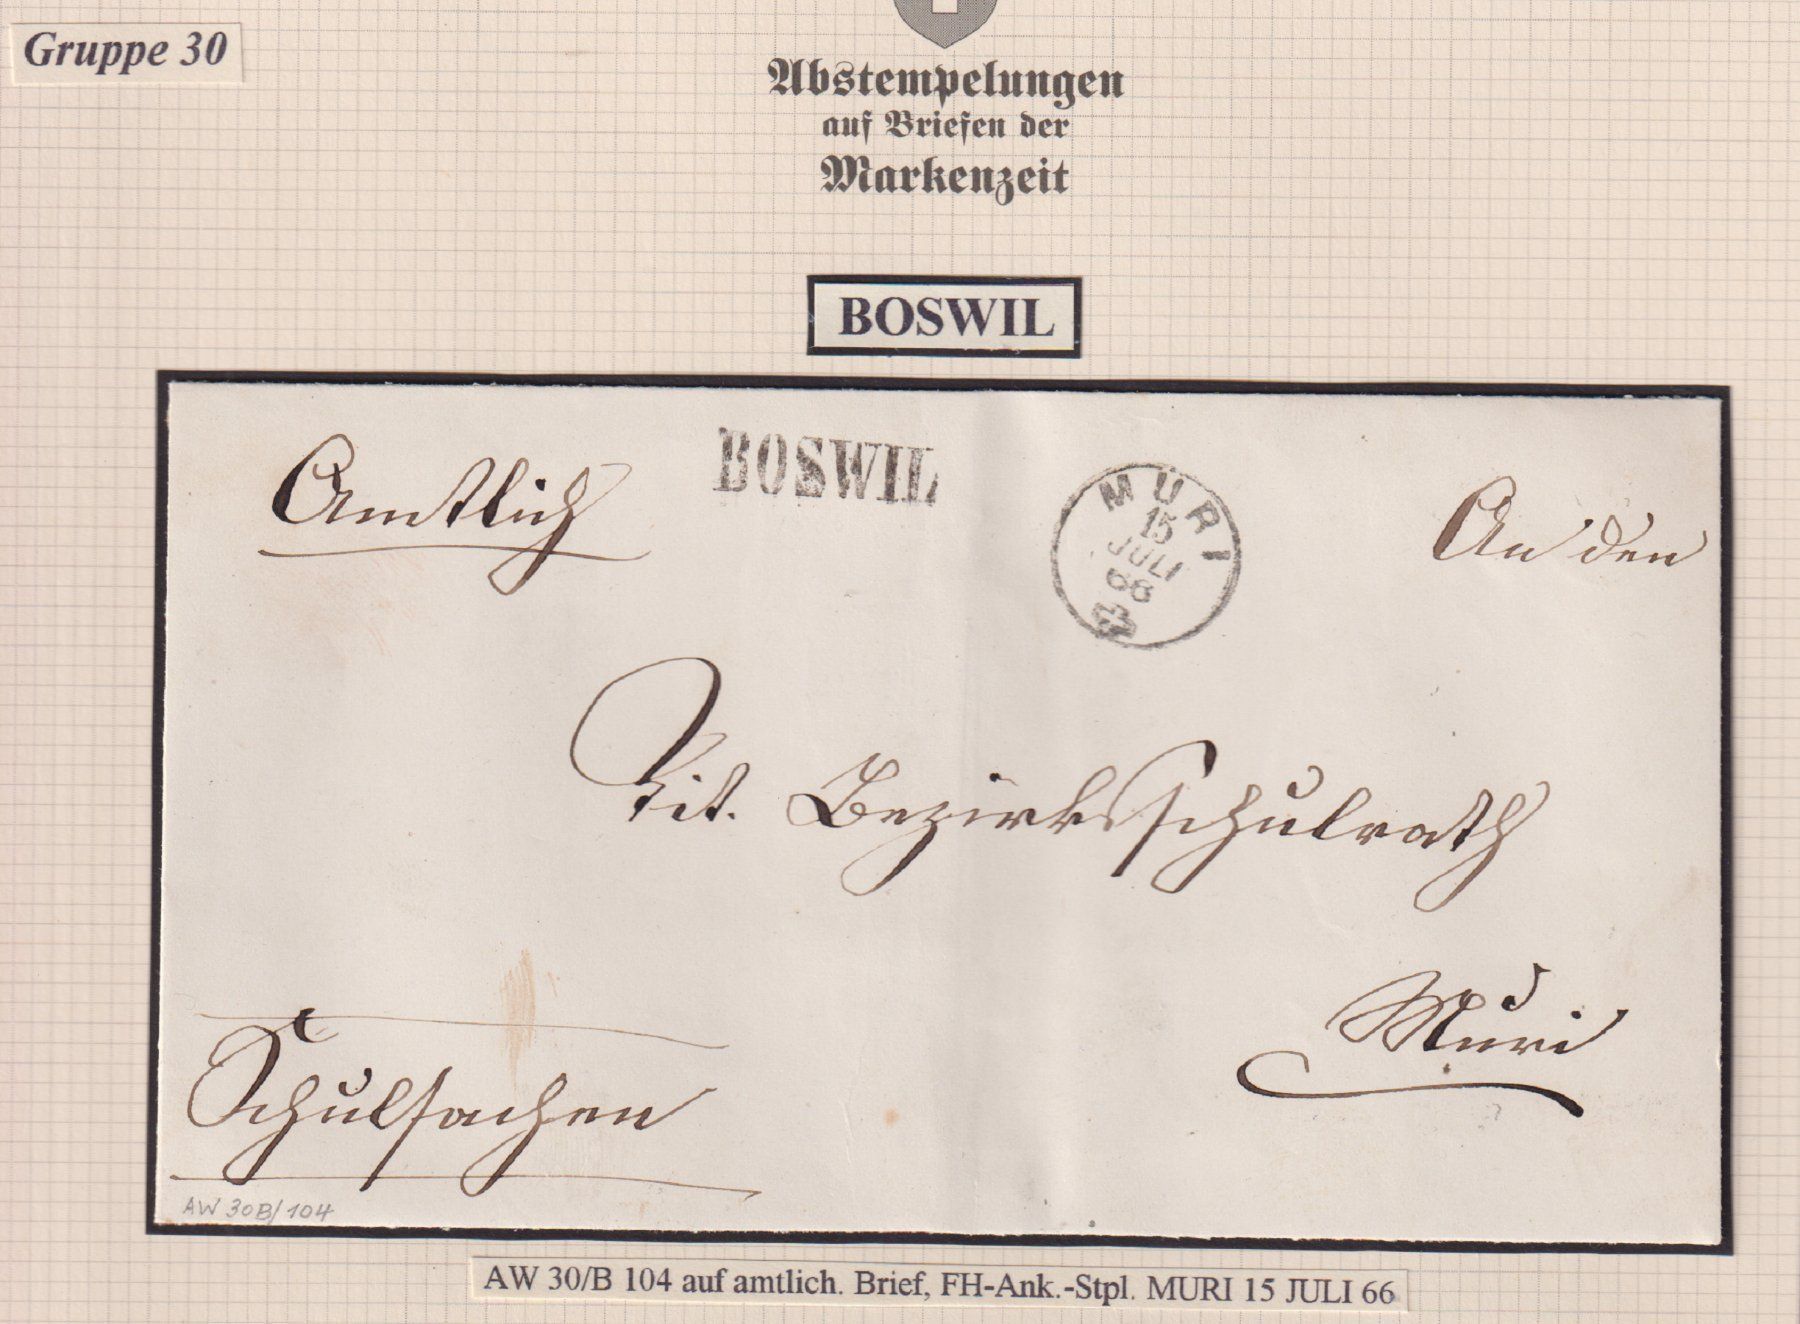 Gruppe 30
Abstempelungen
auf Briefen der
Markenzeit
BOSWIL
Amtlich
BOSWIL
MURI
15
JULI
66
An den
Tit. Bezirksschulrath
Muri
Schulsachen
AW 30B/104
AW 30/B 104 auf amtlich. Brief, FH-Ank.-Stpl. MURI 15 JULI 66